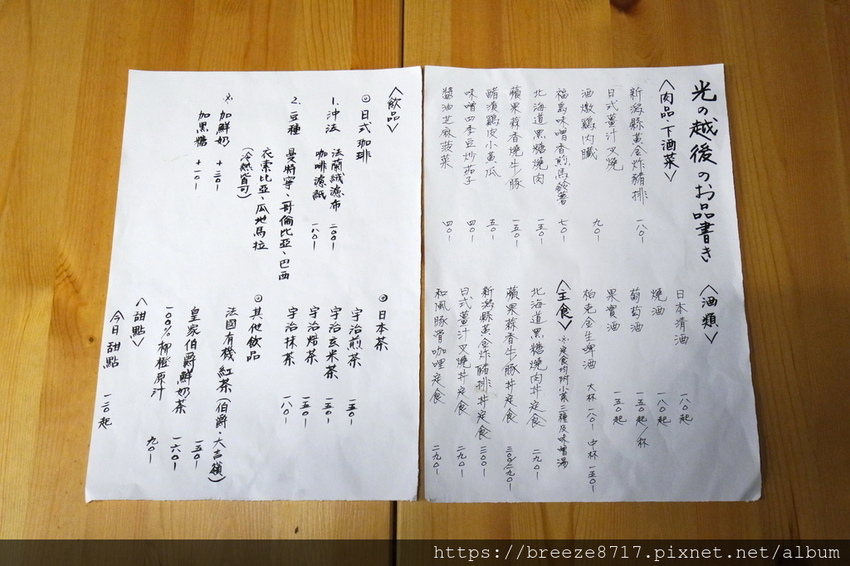 光の越後のお品書き
<肉品・下酒菜>
新潟縣黃金炸豬排 一八〇-
日式薑汁叉燒
酒燉雞內臟 九〇-
福島味噌香煎馬鈴薯 七〇-
北海道黑糖燒肉 一五〇-
蘋果蒜香燒牛/豚 一五〇-
醋漬雞皮小黃瓜 五〇-
味噌四季豆炒茄子 四〇-
醬油芝麻菠菜 四〇-
<酒類>
日本清酒 一八〇起
燒酒 一八〇起
葡萄酒 一五〇起/杯
果實酒 一五〇起
柏克金生啤酒 大杯 一八〇- 中杯 一五〇-
<主食> ※定食均附小菜三種及味噌湯
北海道黑糖燒肉丼定食 二九〇-
蘋果蒜香牛/豚丼定食 三〇〇/二九〇-
新潟縣黃金炸豬排丼定食 三〇〇-
日式薑汁叉燒丼定食 二九〇-
和風豚骨咖哩定食 二九〇-
<飲品>
⊙日式咖啡
1. 沖法 法蘭絨濾布 二〇〇-
咖啡濾紙 一八〇-
2. 豆種 曼特寧、哥倫比亞、巴西
衣索比亞、瓜地馬拉
(冷熱皆可)
※加鮮奶 +三〇-
加黑糖 +一〇-
⊙日本茶
宇治煎茶 一五〇-
宇治玄米茶 一五〇-
宇治焙茶 一五〇-
宇治抹茶 一八〇-
⊙其他飲品
法國有機紅茶(伯爵、大吉嶺) 一五〇-
皇家伯爵鮮奶茶 一六〇-
100%柳橙原汁 九〇-
<甜點>
今日甜點 一二〇起
https://breeze8717.pixnet.net/album